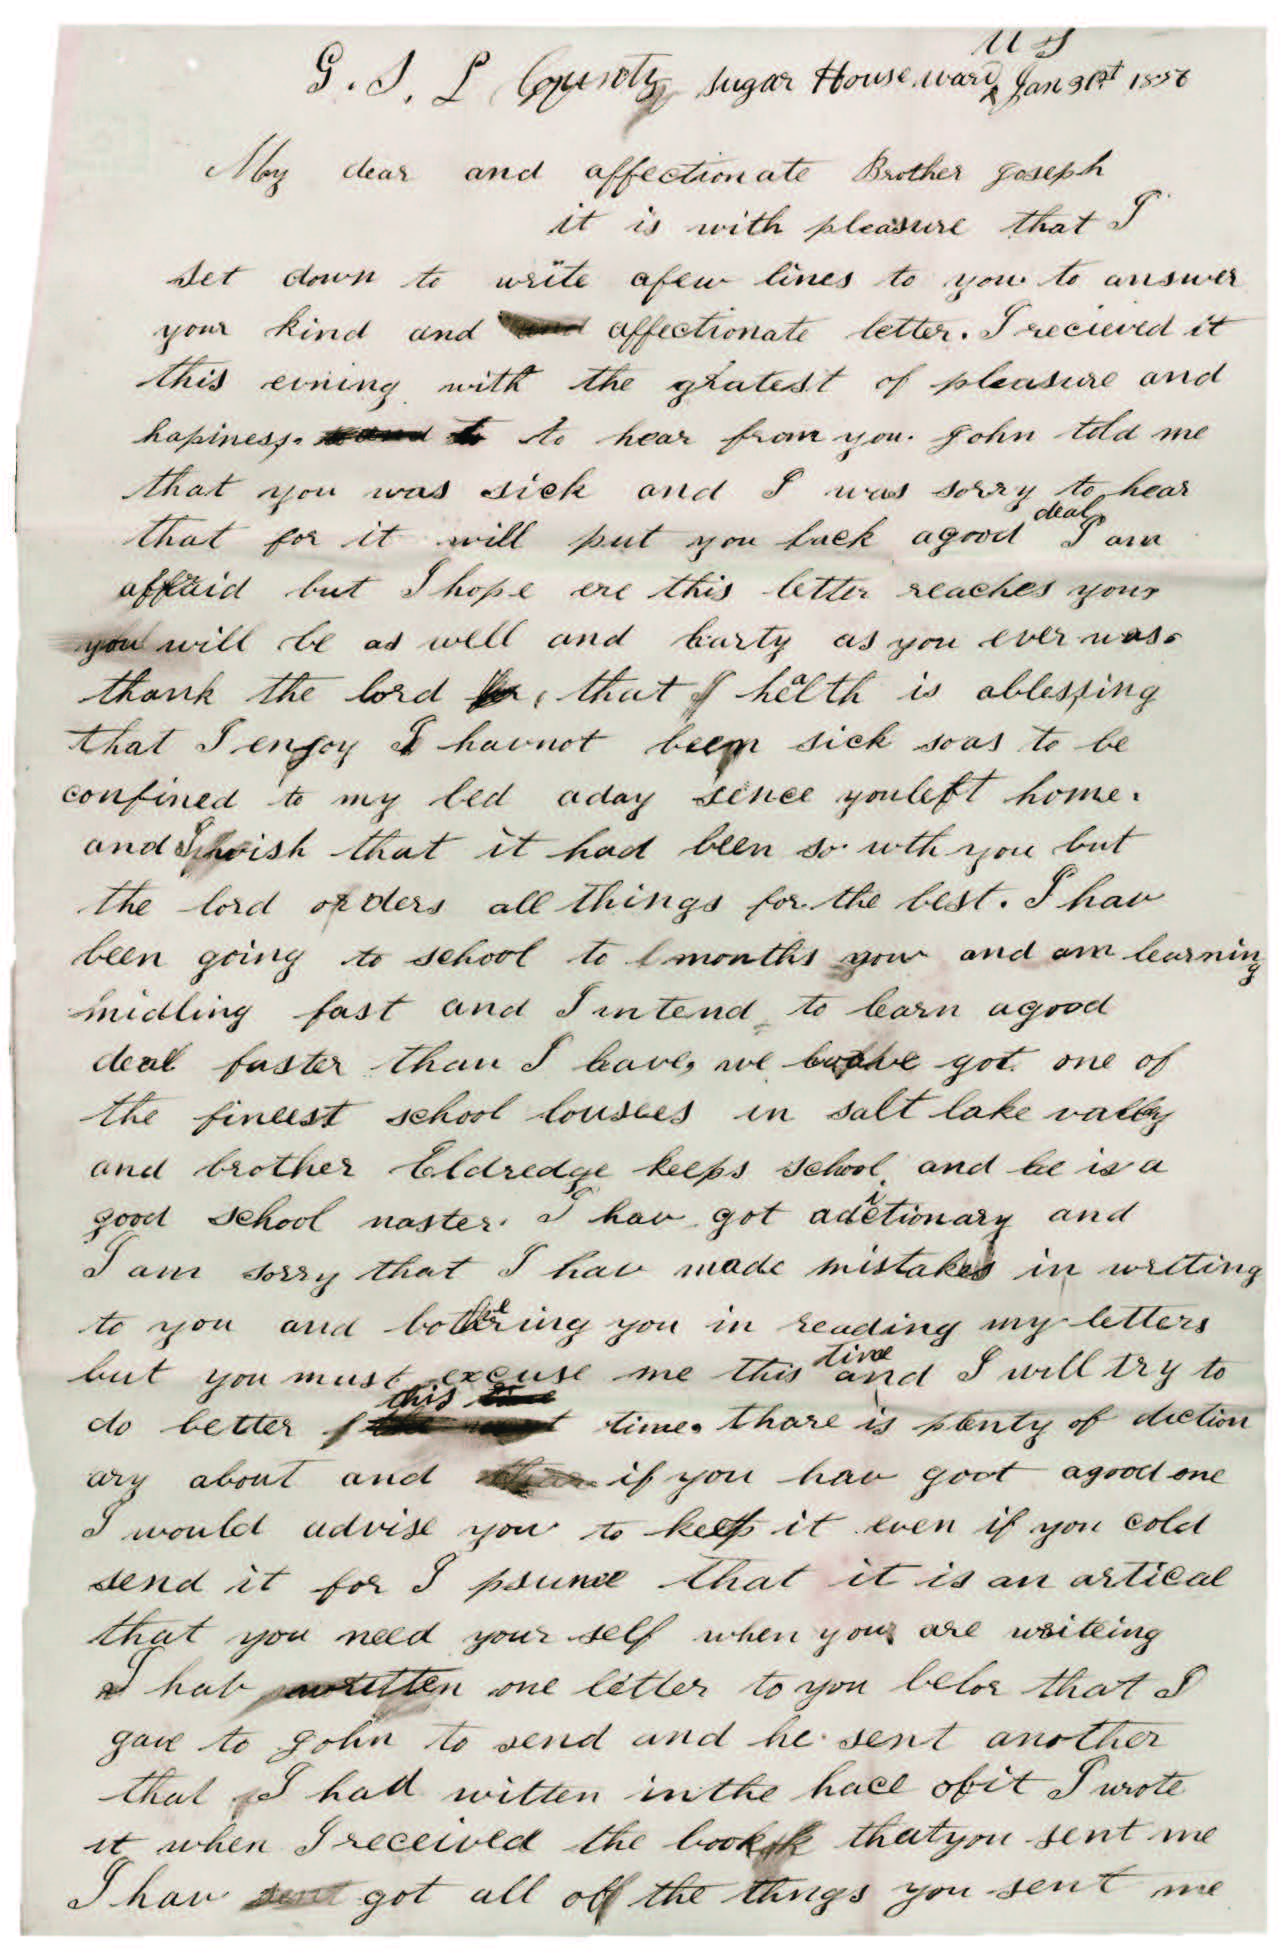 U S
G. S. L County Sugar House ward Jan 31st 1856
My dear and affectionate Brother Joseph
it is with pleasure that I
set down to write afew lines to you to answer
your kind and and affectionate letter. I recieved it
this evning with the gratest of pleasure and
hapiness. to hear from you. John told me
that you was sick and I was sorry to hear
that for it will put you back agood deal I am
affraid but I hope ere this letter reaches your
you will be as well and harty as you ever was.
thank the lord that helth is ablessing
that I enjoy I havnot been sick soas to be
confined to my bed aday sence youleft home.
and I wish that it had been so wth you but
the lord orders all things for the best. I hav
been going to school to months now and am learning
midling fast and I intend to learn agood
deal faster than I have, we have got one of
the fineest school housees in salt lake vally
and brother Eldredge keeps school and he is a
good school master. I hav got adictionary and
I am sorry that I hav made mistakes in writing
to you and bothering you in reading my letters
but you must excuse me this time and I will try to
do better this time. thare is plenty of diction
ary about and if you hav goot agood one
I would advise you to keep it even if you cold
send it for I psume that it is an artical
that you need your self when you are writeing
I hav written one letter to you befor that I
gave to John to send and he sent another
that I had witten inthe hace ofit I wrote
it when I received the book thatyou sent me
I hav sent got all off the thngs you sent me